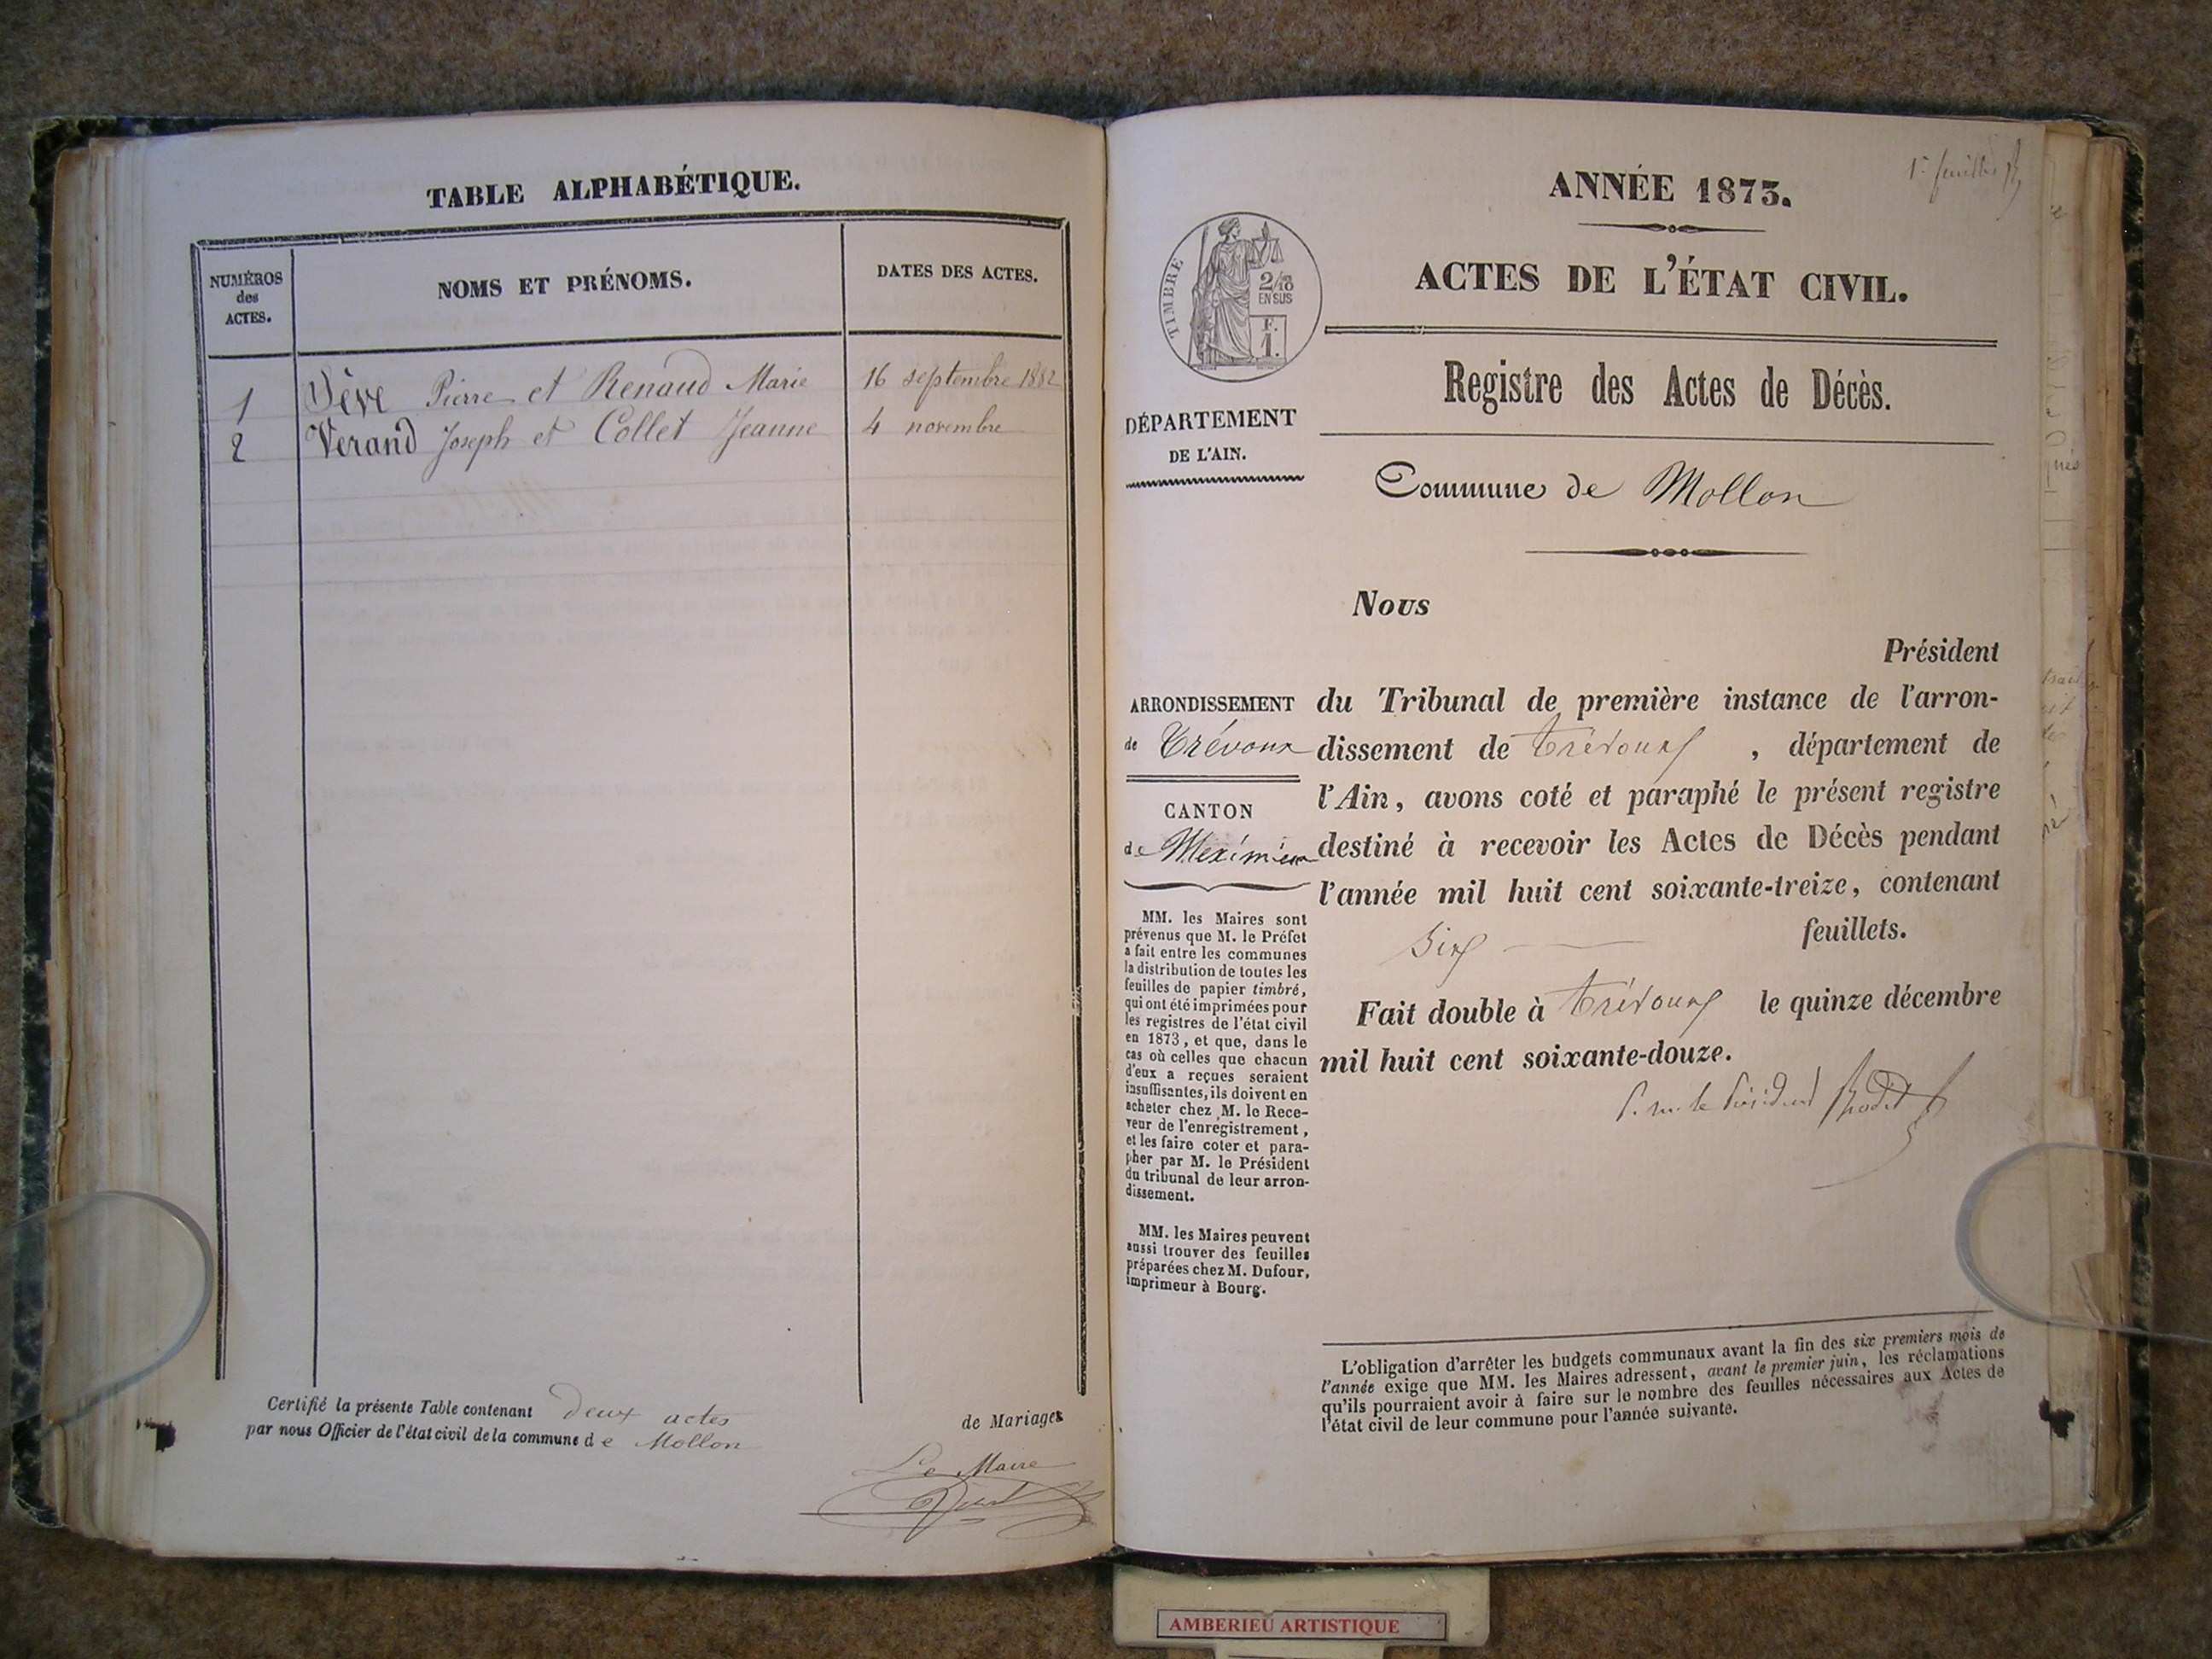 TABLE ALPHABÉTIQUE.
NUMÉROS
des
ACTES.
NOMS ET PRÉNOMS.
DATES DES ACTES.
1 Sève Pierre et Renaud Marie 16 septembre 1882
2 Verand Joseph et Collet Jeanne 4 novembre
Certifié la présente Table contenant deux actes de Mariages
par nous Officier de l'état civil de la commune de Mollon
Le Maire
1er feuillet
ANNÉE 1873.
ACTES DE L'ÉTAT CIVIL.
TIMBRE
2/10
EN SUS
F.
1.
Registre des Actes de Décès.
DÉPARTEMENT
DE L'AIN.
Commune de Mollon
Nous
Président
ARRONDISSEMENT
de Trévoux
CANTON
de Meximieux
du Tribunal de première instance de l'arron-
dissement de Trévoux, département de
l'Ain, avons coté et paraphé le présent registre
destiné à recevoir les Actes de Décès pendant
l'année mil huit cent soixante-treize, contenant
Six feuillets.
Fait double à Trévoux le quinze décembre
mil huit cent soixante-douze.
MM. les Maires sont
prévenus que M. le Préfet
a fait entre les communes
la distribution de toutes les
feuilles de papier timbré,
qui ont été imprimées pour
les registres de l'état civil
en 1873, et que, dans le
cas où celles que chacun
d'eux a reçues seraient
insuffisantes, ils doivent en
acheter chez M. le Rece-
veur de l'enregistrement,
et les faire coter et para-
pher par M. le Président
du tribunal de leur arron-
dissement.
MM. les Maires peuvent
aussi trouver des feuilles
préparées chez M. Dufour,
imprimeur à Bourg.
L'obligation d'arrêter les budgets communaux avant la fin des six premiers mois de
l'année exige que MM. les Maires adressent, avant le premier juin, les réclamations
qu'ils pourraient avoir à faire sur le nombre des feuilles nécessaires aux Actes de
l'état civil de leur commune pour l'année suivante.
AMBERIEU ARTISTIQUE